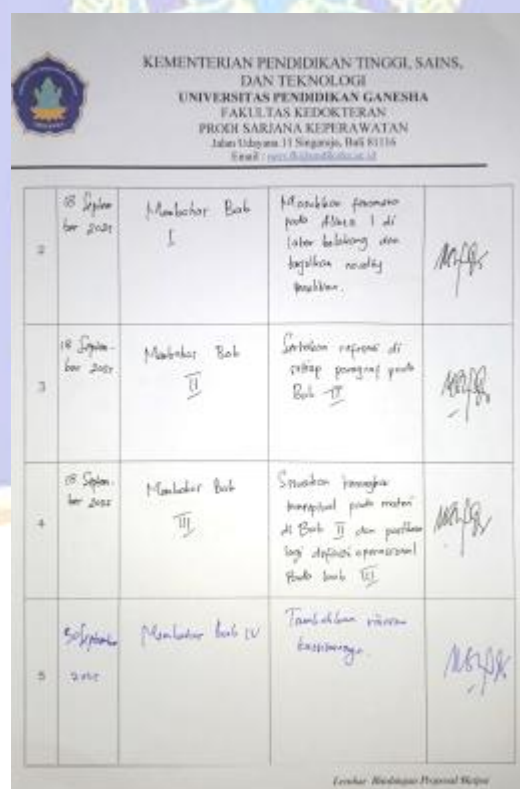 KEMENTERIAN PENDIDIKAN TINGGI, SAINS,
DAN TEKNOLOGI
UNIVERSITAS PENDIDIKAN GANESHA
FAKULTAS KEDOKTERAN
PRODI SARJANA KEPERAWATAN
Jalan Udayana 11 Singaraja, Bali 81116
Email :
2
18 Septem
ber 2025
Membahas Bab
I
Masukkan fenomena
pada alinea I di
latar belakang dan
novelty
penelitian.
3
18 Septem-
ber 2025
Membahas Bab
II
Sertakan referensi di
setiap paragraf pada
Bab II
4
18 Septem-
ber 2025
Membahas Bab
III
Sesuaikan kerangka
konseptual pada materi
di Bab II dan pastikan
lagi definisi operasional
Pada bab III
5
30 September
2025
Membahas bab IV
Tambahkan
Lembar Bimbingan Proposal Skripsi